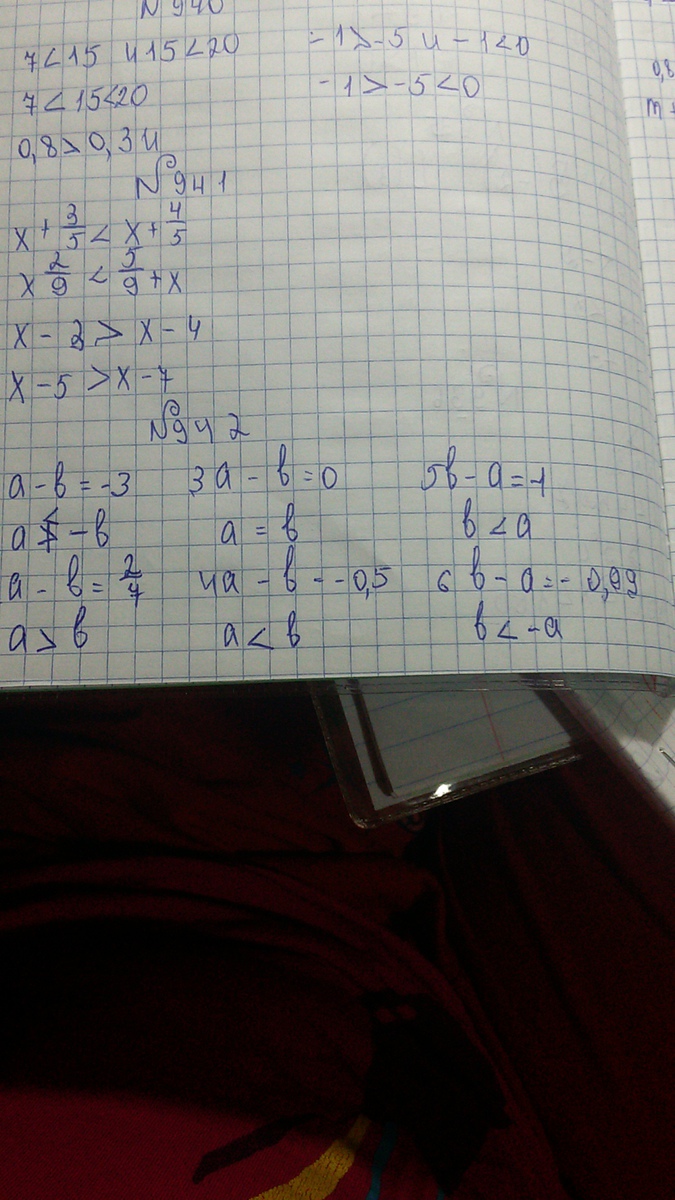 № 940
7<15 и 15<20
7<15<20
0,8>0,3 и
-1>-5 и -1<0
-1>-5<0
0,8
m +
№ 941
x + 3/5 < x + 4/5
x 2/9 < 5/9 + x
x - 2 > x - 4
x - 5 > x - 7
№ 942
a - b = -3 3 a - b = 0 5 b - a = -1
a < - b a = b b < a
a - b = 2/7 4 a - b - -0,5 6 b - a = - 0,99
a > b a < b b < -a